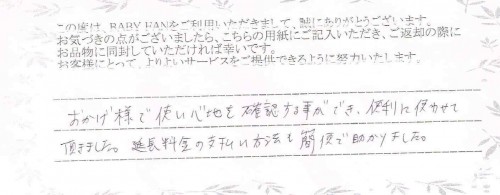 この度は、BABY FANをご利用いただきまして、誠にありがとうございます。
お気づきの点がございましたら、こちらの用紙にご記入いただき、ご返却の際に
お品物に同封していただければ幸いです。
お客様にとって、よりよいサービスをご提供できるように努力いたします。
おかげ様で使い心地を確認する事ができ、便利に使わせて
頂きました。延長料金の支払い方法も簡便で助かりました。